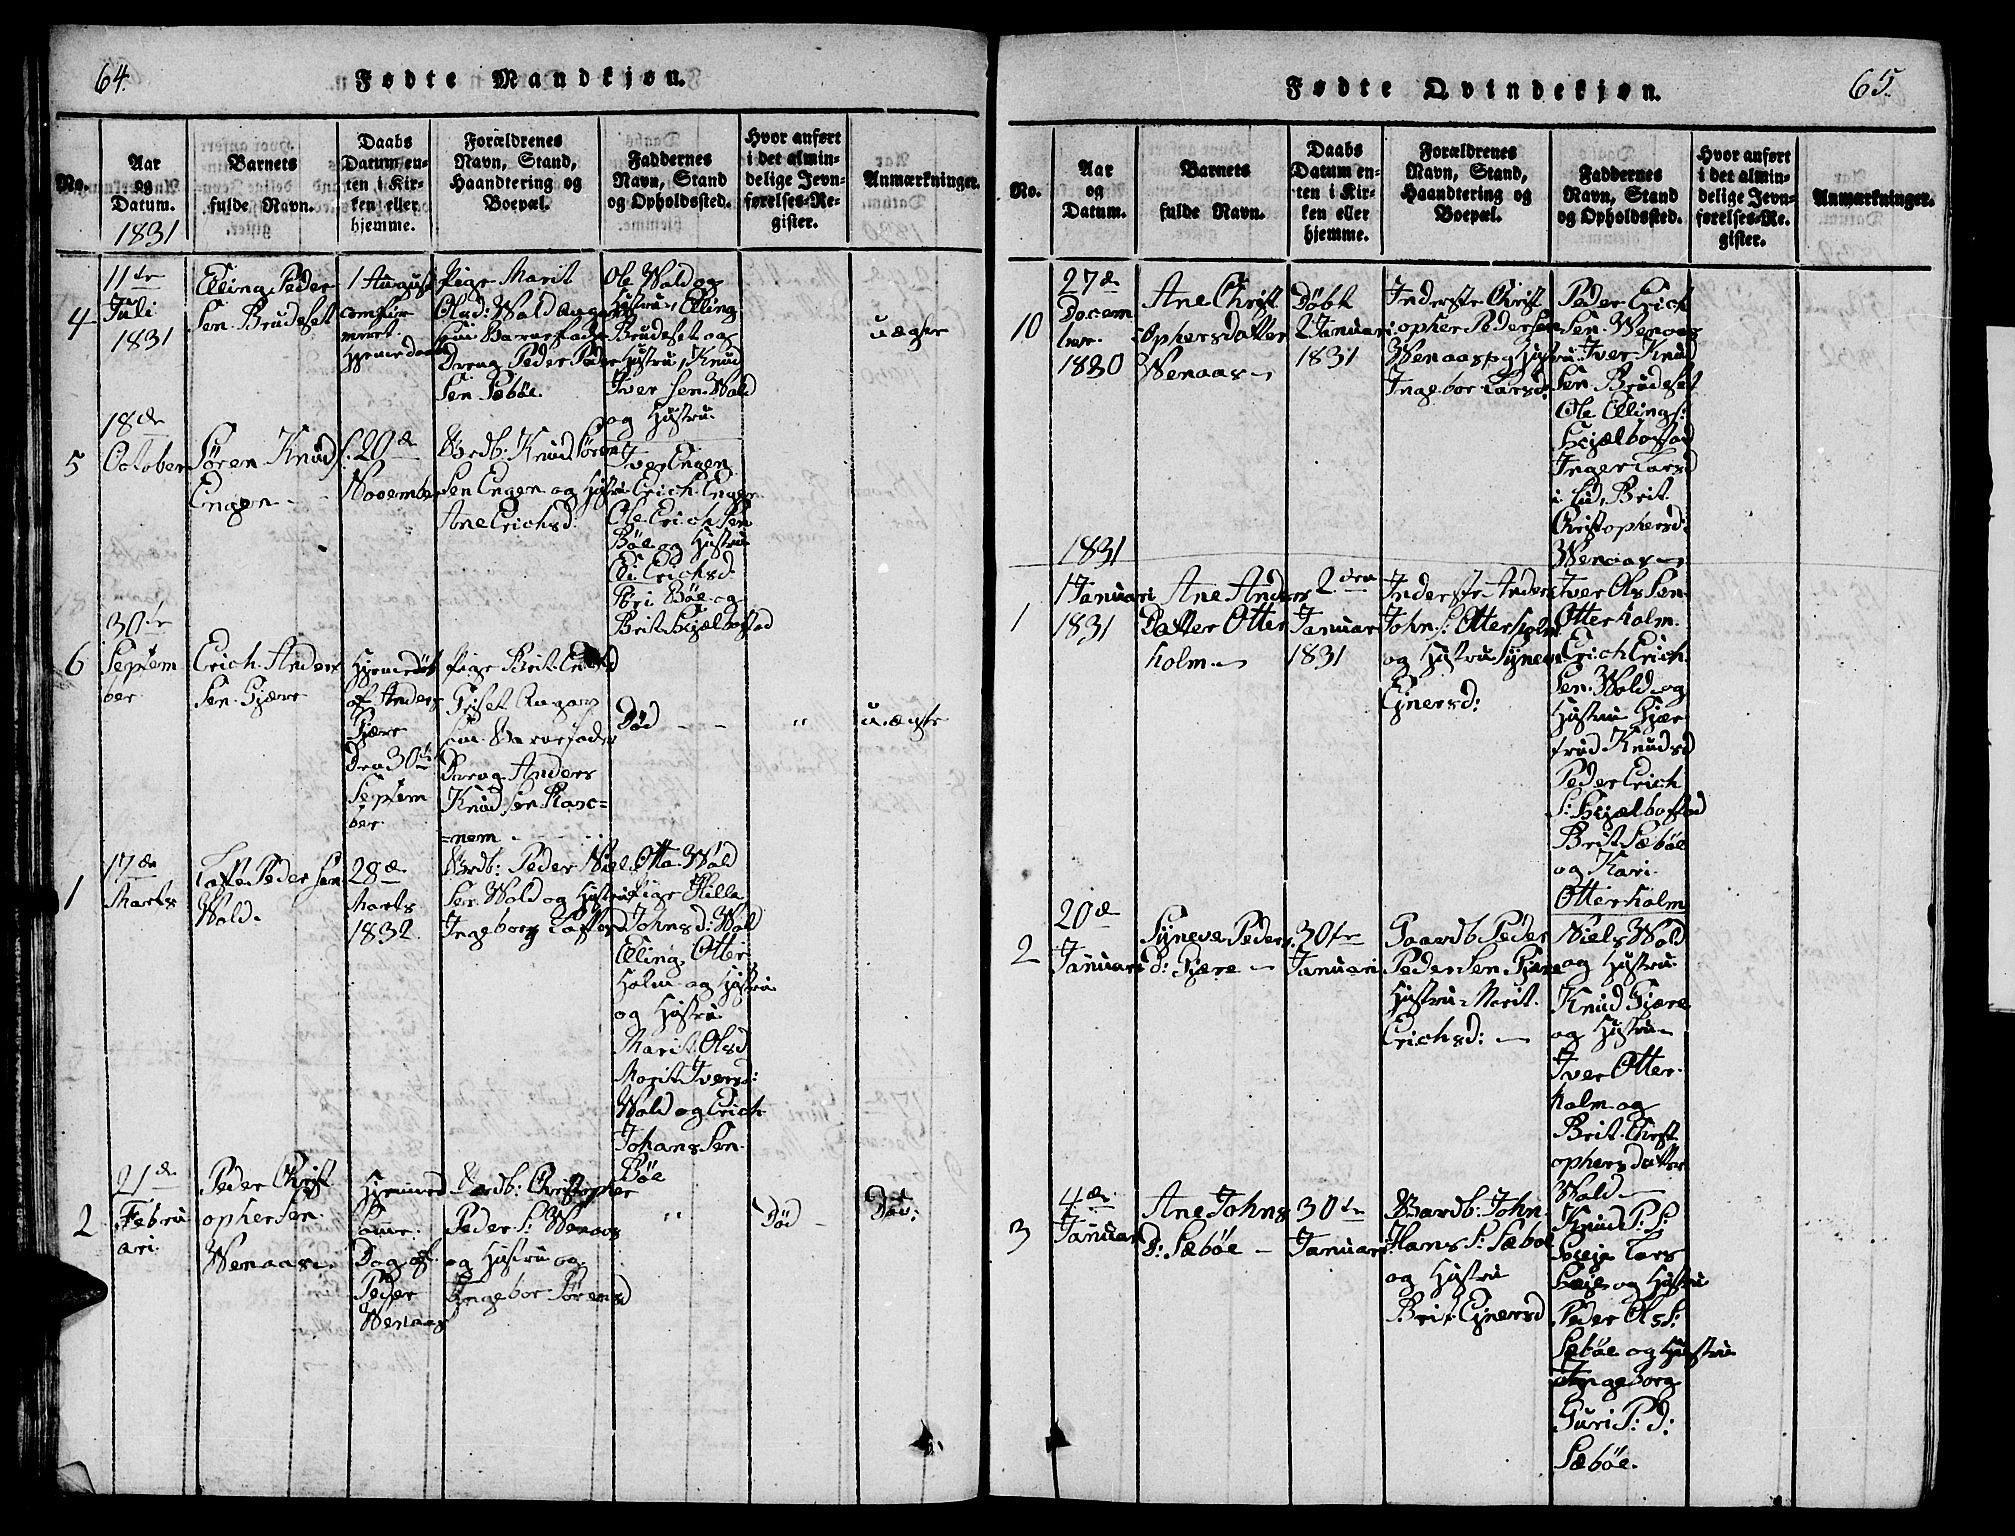 64.
Fødte Mandkjøn.
No.
Aar
og
Datum.
1831
Barnets
fulde Navn.
Daabs
Datum en-
ten i Kir-
ken eller
hjemme.
Forældrenes
Navn, Stand,
Haandtering og
Boepæl.
Faddernes
Navn, Stand
og Opholdssted.
Hvor anført
i det almin-
delige Jevn-
førelses-Re-
gister.
Anmærkninger.
4
11te
Juli
1831
Elling Peder
Sen Brudeset
1 August
Pige Marit
Olsd: Wold
Barnefader
Dreng Peder Peder
Sen Sæbøe.
Ole Wold og
Hustru, Elling
Brudeset og
Hustru, Knud
Iver Sen Wold
og Hustru.
uægte
5
18de
October
Søren Knud
Engen
20de
November
Grdb: Knud Søren
Sen Engen og Hustru
Ane Erichsd:
Iver Engen
Erich Engen
Ole Erich Sen
Bøe og Hustru
Eli Erichsd.
Bøe og
Brit Hjælbostad
6
30te
Septem
ber.
Erich Anders
Sen Gjære
Hjemedøbt
af Anders
Gjære
Den 30te
Septem
ber
Pige Brit
Barnefader
Dreng Anders
Knud Sen
=nem
Død
"
uægte
1
17de
Marts
Peder Sen
Wold.
28de
Marts
1832.
Grdb: Peder Niel
Sen Wold og Hustru
Ingeborg
Otte Wold
Pige
Johnsd: Wold
Elling Otter
Holm og Hustru
og Hustru
Marit Olsd
Marit Iversd:
Wold og Erich
Johans Sen
Bøe
2
21de
Febru
ari.
Peder Christ
opher Sen
Wenaas.
Dag af
Peder
Wenaas
Gardb: Christopher
Peder S: Wenaas
og Hustru
Ingebor Sørensd
"
Død
Død:
65.
Fødte Qvindekjøn.
No.
Aar
og
Datum.
Barnets
fulde Navn.
Daabs
Datum en-
ten i Kir-
ken eller
hjemme.
Forældrenes
Navn, Stand,
Haandtering og
Boepæl.
Faddernes
Navn, Stand
og Opholdssted.
Hvor anført
i det almin-
delige Jevn-
førelses-Re-
gister.
Anmærkninger.
10
27de
Decem
ber.
1830
Ane Christ
Ophersdatter
Wenaas
Døbt
2 Januari
1831
Inderste Christ
opher Peder Sen
Wenaas og Hustru
Ingebor Larsd:
Peder Erich
Sen Wenaas
Iver Knud
Sen Brudeset
Ole Ellings:
Hjælbostad
Inger Larsd
i Lid, Brit
Christophersd:
Wenaas
1831
1
1 Januari
1831
Ane Anders
Datter Otter
holm
2den
Januari
1831
Inderste Anders
John S: Otterholm
og Hustru Synev
Ejnersd:
Iver Ols Sen
Otterholm.
Erich Erich
Sen Wold og
Hustru Gjær
trud Knudsd
Peder Erich
S: Hjælbostad
Brit Sæbøe
og Kari
Otterholm
2
20de
Januari
Syneve Peders
d: Gjære
30te
Januari
Gaardb Peder
Peder Sen Gjære
Hustru Marit
Erichsd:
Niels Wold
og Hustru
Knud Gjære
og Hustru
Iver Otter
holm og
Brit Christ
ophers datter
Wold
3
4de
Januari
Ane Johns
D: Sæbøe
30te
Januari
Gardb: John
Hans S: Sæbøe
og Hustru
Brit Ejnersd
Knud P: S:
Lars
og Hustru
Peder Ols S:
Sæbøe og Hustru
Ingeborg
Guri P: d:
Sæbøe.